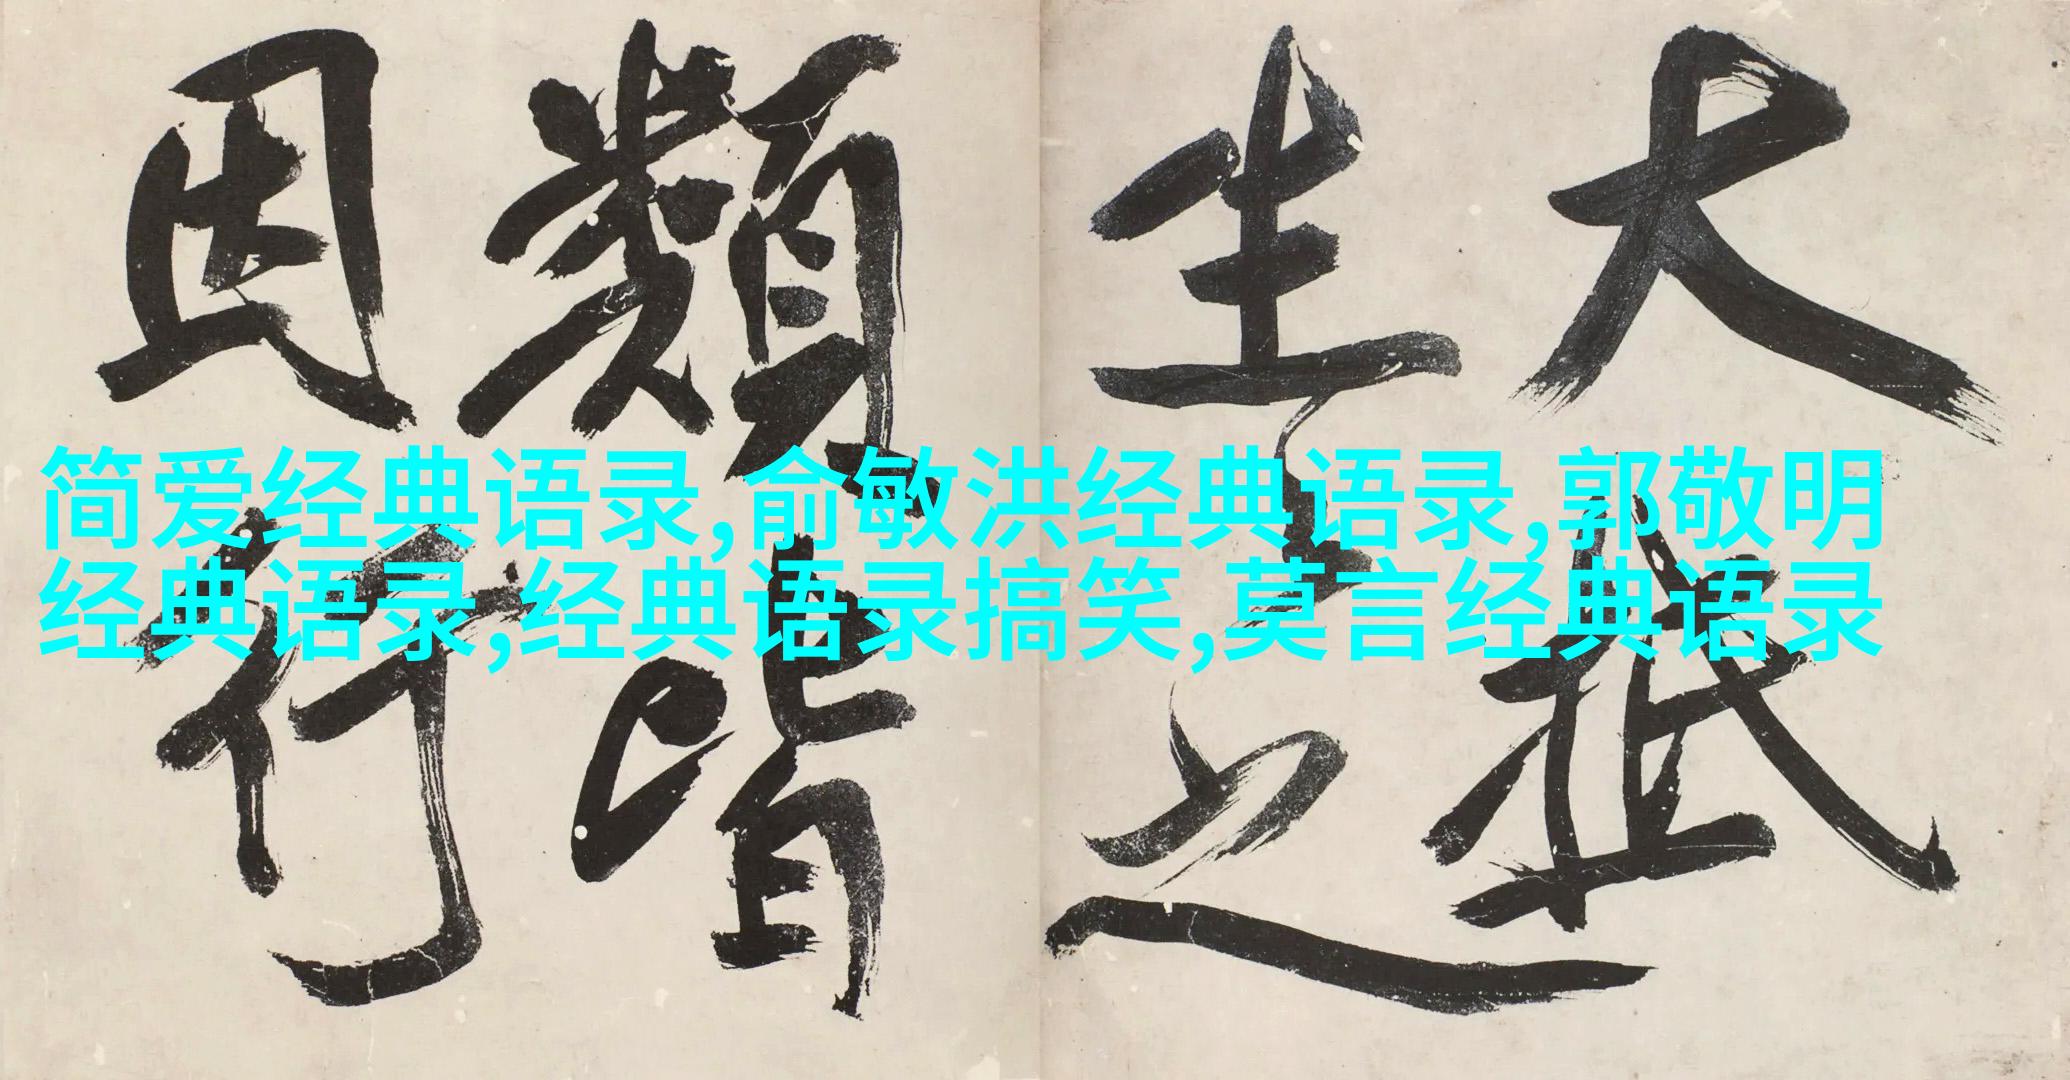 大抵
生之
類皆
因行
简爱经典语录,俞敏洪经典语录,郭敬明
经典语录,经典语录搞笑,莫言经典语录